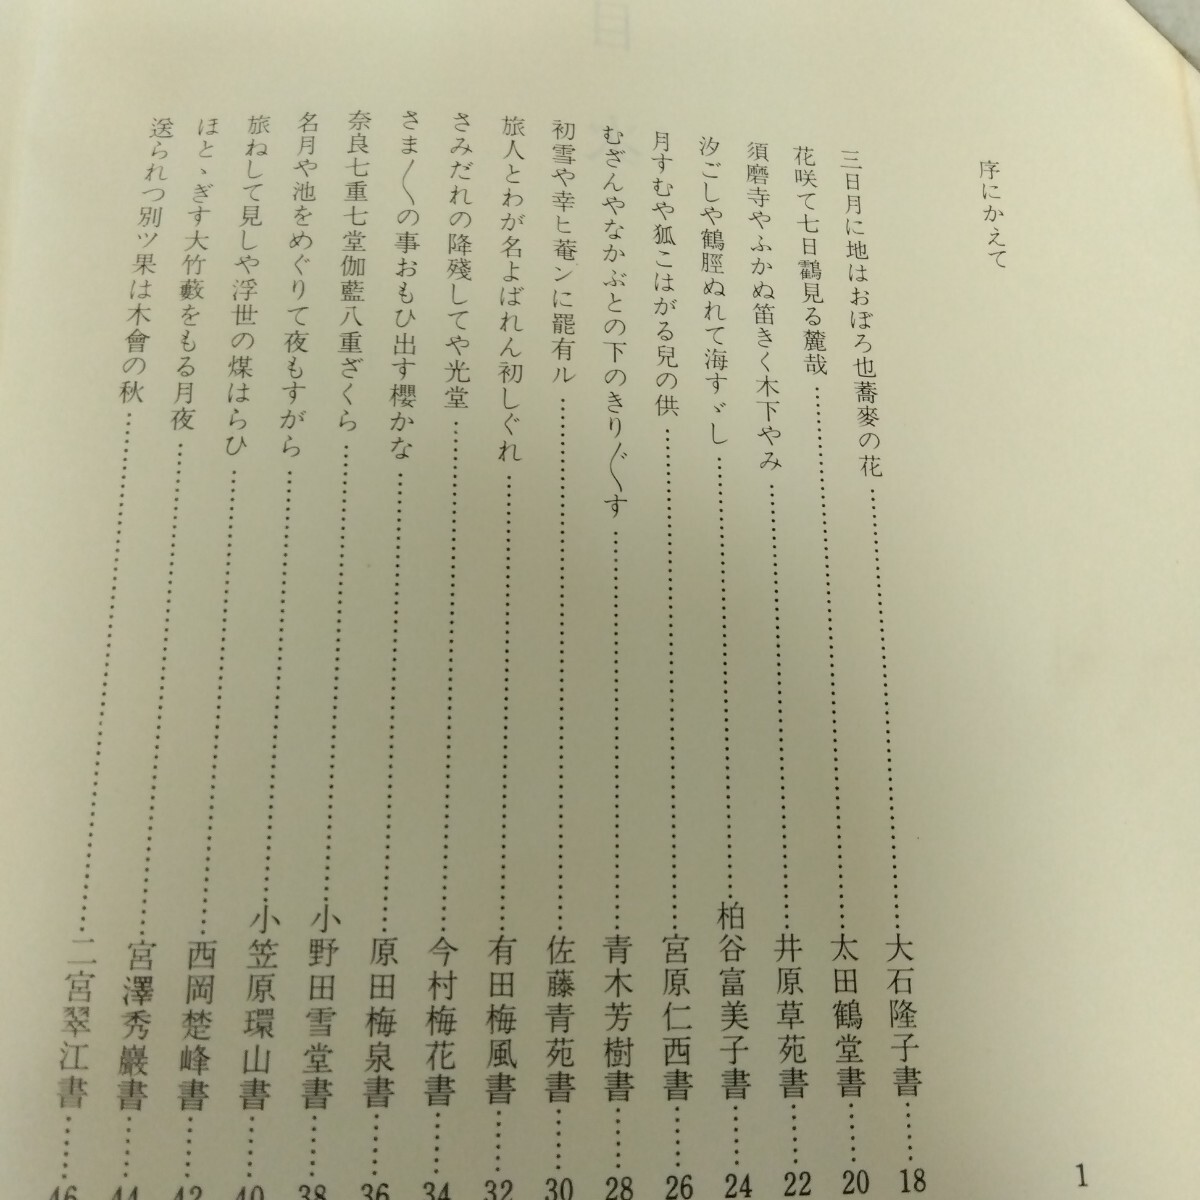 序にかえて 1
三日月に地はおぼろ也蕎麥の花 大石隆子書 18
花咲て七日鶴見る麓哉 太田鶴堂書 20
須磨寺やふかぬ笛きく木下やみ 井原草苑書 22
汐ごしや鶴脛ぬれて海すゞし 柏谷富美子書 24
月すむや狐こはがる兒の供 宮原仁西書 26
むざんやなかぶとの下のきり〲す 青木芳樹書 28
初雪や幸ヒ菴ンに罷有ル 佐藤青苑書 30
旅人とわが名よばれん初しぐれ 有田梅風書 32
さみだれの降殘してや光堂 今村梅花書 34
さま〱の事おもひ出す櫻かな 原田梅泉書 36
奈良七重七堂伽藍八重ざくら 小野田雪堂書 38
名月や池をめぐりて夜もすがら 小笠原環山書 40
旅ねして見しや浮世の煤はらひ 西岡楚峰書 42
ほとゝぎす大竹藪をもる月夜 宮澤秀巖書 44
送られつ別ツ果は木會の秋 二宮翠江書 46